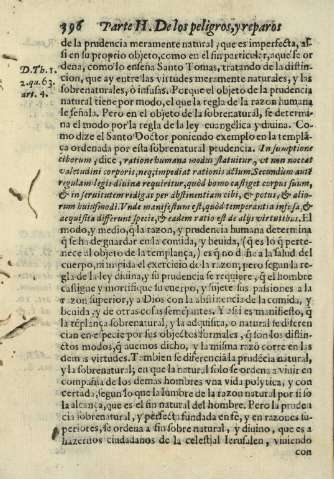 396 Parte II. De los peligros, y reparos
de la prudencia meramente natural, que es imperfecta, assi
si en su proprio objeto, como en el fin particular, a que se or
dena, como lo enseña Santo Tomas, tratando de la distin-
D. Th. 1.
2. qu. 63.
art. 4.
cion, que ay entre las virtudes meramente naturales, y las
sobrenaturales, ò infusas. Porque el objeto de la prudencia
natural tiene por modo, el que la regla de la razon humana
le señala. Pero en el objeto de la sobrenatural, se determi-
na el modo por la regla de la ley euangelica y diuina. Co-
mo dize el Santo Doctor poniendo exemplo en la templã-
ça ordenada por esta sobrenatural prudencia. In sumptione
ciborum, dice, ratione humana modus statuitur, vt non noceat
valetudini corporis, nec impediat rationis actum. Secundum autē
regulam legis diuinæ requiritur, quòd homo castiget corpus suum,
& in seruitutem redigat per abstinentiam cibi, & potus, & alio-
rum huiusmodi. Vnde manifestum est, quòd temperantia infusa, &
acquisita differunt specie, & eadem ratio est de alijs virtutibus. El
modo, y medio, q̃ la razon, y prudencia humana determina
q̃ se ha de guardar en la comida, y beuida, (q̃ es lo q̃ perte-
nece al objeto de la templança,) es q̃ no dañe a la salud del
cuerpo, ni impida el exercicio de la razon; pero segun la re-
gla de la ley diuina, y su prudencia se requiere, q̃ el hombre
castigue y mortifique su cuerpo, y sujete sus pasiones a la
razon superior, y a Dios con la abstinencia de la comida, y
beuida, y de otras cosas semejantes. Y assi es manifiesto, q̃
la tẽplança sobrenatural, y la adquisita, o natural se diferen
cian en especie por sus objectos formales, q̃ son los distin-
ctos modos, q̃ auemos dicho, y la misma razõ corre en las
demas virtudes. Tambien se diferencia la prudẽcia natural,
y la sobrenatural; en que la natural solo se ordena a viuir en
compañia de los demas hombres vna vida polytica, y con
certada, segun lo que la lumbre de la razon natural por si so
la alcança, que es el fin natural del hombre. Pero la pruden
cia sobrenatural, y perfecta fundada en fè, y en razones su-
periores, se ordena a fin sobre natural, y diuino, que es a
hazernos ciudadanos de la celestial Ierusalen, viuiendo
con